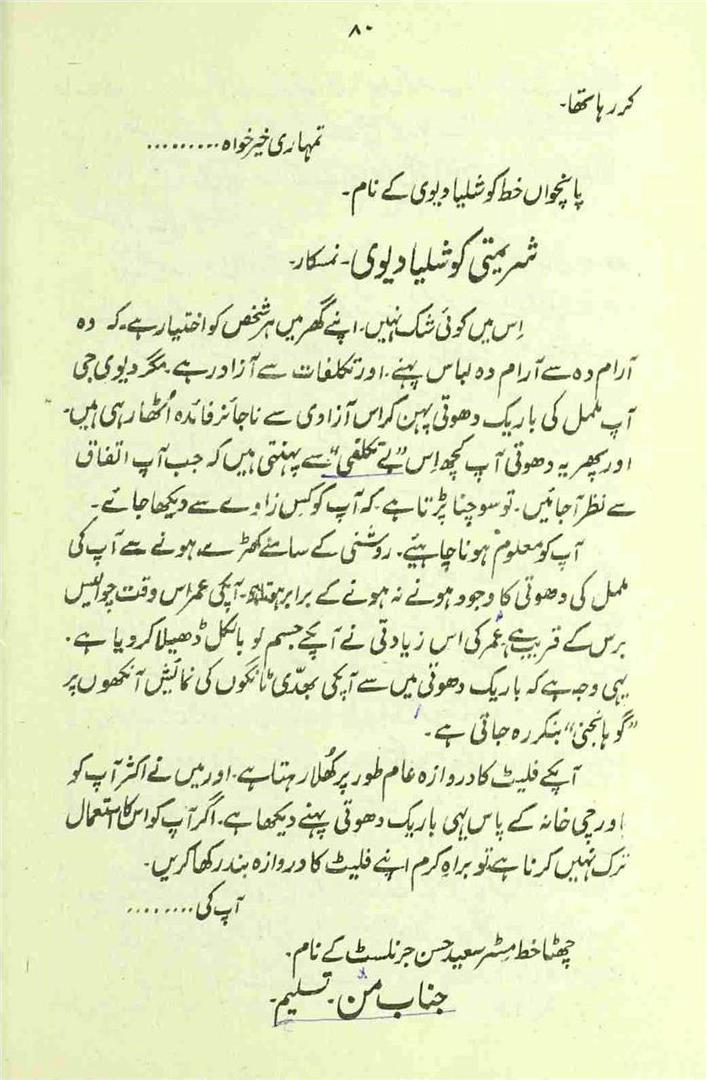 ۸۰
کر رہا تھا۔
تمہاری خیر خواہ .........
پانچواں خط کوشلیا دیوی کے نام۔
شریمتی کوشلیا دیوی۔ نمسکار۔
اِس میں کوئی شک نہیں۔ اپنے گھر میں ہر شخص کو اختیار ہے۔ کہ وہ
آرام دہ سے آرام دہ لباس پہنے۔ اور تکلفات سے آزاد رہے۔ مگر دیوی جی
آپ ململ کی باریک دھوتی پہن کر اس آزادی سے ناجائز فائدہ اُٹھا رہی ہیں۔
اور پھر یہ دھوتی آپ کچھ اِس ”بے تکلفی“ سے پہنتی ہیں کہ جب آپ اتفاق
سے نظر آجائیں۔ تو سوچنا پڑتا ہے۔ کہ آپ کو کِس زاوئے سے دیکھا جائے۔
آپ کو معلوم ہونا چاہیئے۔ روشنی کے سامنے کھڑے ہونے سے آپ کی
ململ کی دھوتی کا وجود ہونے نہ ہونے کے برابر ہوتا ہے۔ آپکی عمر اس وقت چوالیس
برس کے قریب ہے، عُمر کی اس زیادتی نے آپکے جسم کو بالکل ڈھیلا کر دیا ہے۔
یہی وجہ ہے کہ باریک دھوتی میں سے آپکی بھدّی ٹانگوں کی نمائش آنکھوں پر
”گوہانجنی“ بنکر رہ جاتی ہے۔
آپکے فلیٹ کا دروازہ عام طور پر کُھلا رہتا ہے۔ اور میں نے اکثر آپ کو
باورچی خانہ کے پاس یہی باریک دھوتی پہنے دیکھا ہے۔ اگر آپ کو اس کا استعمال
ترک نہیں کرنا ہے تو براہِ کرم اپنے فلیٹ کا دروازہ بند رکھا کریں۔
آپ کی ........
چھٹا خط مسٹر سعید حسن جرنلسٹ کے نام۔
جناب من۔ تسلیم۔